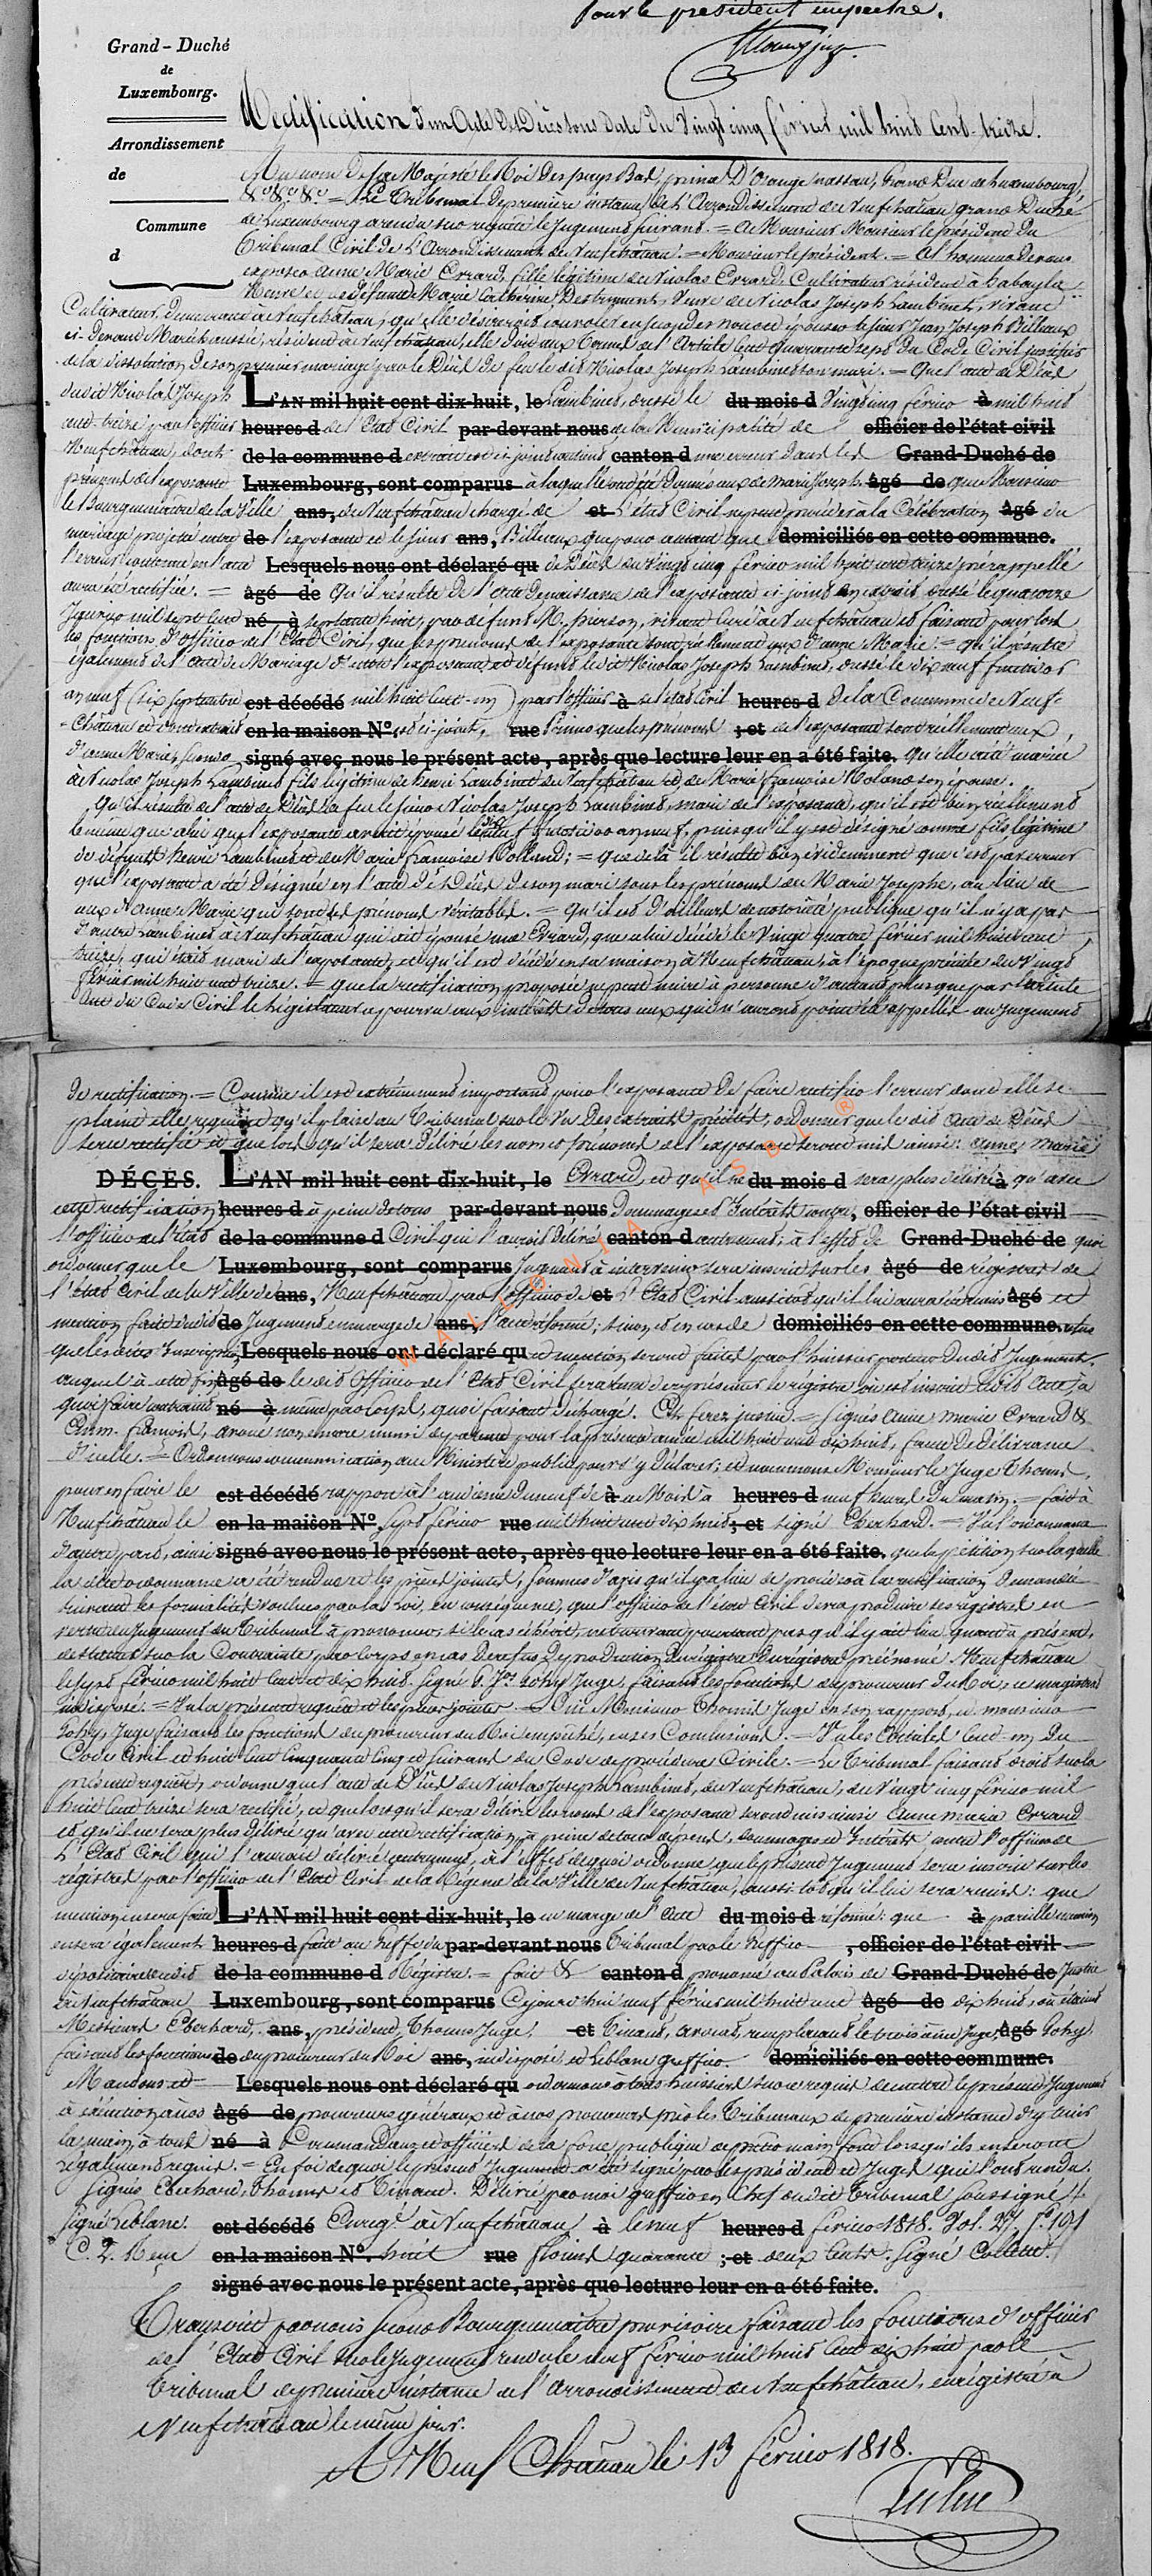 Pour le président empeché.
Grand-Duché
de
Luxembourg.
Rectification d'un Acte de Décès sous date du vingt cinq février mil huit cent treize.
Arrondissement
de
Au nom de sa Majesté le Roi des pays Bas, prince D'Orange nassau, Grand Duc de Luxembourg,
&c. &c. &c. = Le Tribunal de première instance de l'Arrondissement de Neufchâteau grand Duché
de Luxembourg a rendu sur requête le jugement suivant. = A Monsieur Monsieur le président du
Commune
d
Tribunal Civil de l'Arrondissement de Neufchâteau. = Monsieur le président. = A l'honneur de vous
exposer anne Marie Errard, fille légitime de Nicolas Errard, Cultivateur résident à habay la
Neuve et de défunte Marie Catherine Destrument, Veuve de Nicolas Joseph Lambinet, vivant
Cultivateur, demeurant à Neufchâteau; qu'elle désirerait convoler en secondes noces et épouser le sieur Jean Joseph Billeaux
ci-devant Maréchaussée, résident à Neufchâteau, elle doit aux termes de l'Article Cent quarante sept du Code Civil justifier
de la dissolution de son premier mariage par le Décès de feu le dit Nicolas Joseph Lambinet son mari. = Que l'acte de Décès
dudit Nicolas Joseph L'AN mil huit cent dix-huit, le Lambinet, dressé le du mois d Vingt cinq février à mil huit
cent treize par l'officier heures d de l'Etat Civil par-devant nous de la Municipalité de officier de l'état civil
Neufchâteau, dont de la commune d extrait est ci joint contient canton d une erreur dans les Grand-Duché de
prénoms de l'exposante Luxembourg, sont comparus à laquelle on a donné ceux de marie Joseph. âgé de que Monsieur
le Bourguemaitre de la Ville ans, de Neufchâteau chargé de et l'état Civil ne peut procéder à la Célébration âgé du
mariage projeté entre de l'exposante et le sieur ans, Billeaux que pour autant que domiciliés en cette commune.
l'erreur contenue en l'acte Lesquels nous ont déclaré qu de Décès du vingt cinq février mil huit cent treize prérappellé
aura été rectifiée. = âgé de Qu'il résulte de l'acte de naissance de l'exposante ci joint en extrait dressé le quatorze
Janvier mil sept cent né à septante huit, par défunt M. pierson, vivant curé à Neufchâteau et faisant pour lors
les fonctions d'officier de l'Etat Civil, que les prénoms de l'exposante sont réellement ceux d'anne Marie. = qu'il résulte
également de l'acte de Mariage d'entre l'exposante et defunt le dit Nicolas Joseph Lambinet, dressé le dix neuf fructidor
an neuf (six septembre est décédé mil huit cent un) par l'officier à de l'état Civil heures d de la Commune de Neuf-
Château et dont extrait en la maison N° est ci-joint, rue primo que les prénoms ; et de l'exposante sont réellement ceux
d'anne Marie, secundo signé avec nous le présent acte, après que lecture leur en a été faite. qu'elle a été mariée
à Nicolas Joseph Lambinet fils légitime de henri Lambinet de Neufchâteau et de Marie françoise Roland son épouse.
Qu'il résulte de l'acte de Décès de feu le sieur Nicolas Joseph Lambinet, mari de l'exposante, qu'il est bien réellement
le même que celui que l'exposante avait épousé le dix neuf fructidor an neuf, puisqu'il y est désigné comme fils légitime
de défunt henri Lambinet et de Marie françoise Rolland; = que de là il résulte bien évidemment que c'est par erreur
que l'exposante a été désignée en l'acte de Décès de son mari sous les prénoms de Marie Josephe, au lieu de
ceux d'Anne Marie qui sont ses prénoms véritables. = qu'il est d'ailleurs de notoriété publique qu'il n'y a pas
d'autre Lambinet à Neufchâteau qui ait épousé une Errard, que celui décédé le Vingt quatre février mil huit cent
treize, qui était mari de l'exposante, et qu'il est décédé en sa maison à Neufchâteau, à l'époque précitée du vingt
février mil huit cent treize. = que la rectification proposée ne peut nuire à personne d'autant plus que par l'article
Cent du Code Civil le législateur a pourvu aux intérêts de tous ceux qui n'auront point été appellés au jugement
de rectification. = Comme il est extrêmement important pour l'exposante de faire rectifier l'erreur dont elle se
plaint elle requiert qu'il plaise au Tribunal sur le Vu des extraits précités, ordonner que le dit acte de Décès
sera rectifié et que lors qu'il sera délivré les noms et prénoms de l'exposante seront mis ainsi: anne marie
DÉCÈS. L'AN mil huit cent dix-huit, le Errard, et qu'il ne du mois d sera plus délivré à qu'avec
cette rectification heures d à peine de tous par-devant nous Dommages et Intérêts contre, officier de l'état civil
l'officier de l'état de la commune d Civil qui l'aurait délivré canton d autrement; à l'effet de Grand-Duché de quoi
ordonner que le Luxembourg, sont comparus Jugement à intervenir sera inscrit sur les âgé de régistres de
l'état Civil de la Ville de ans, Neufchâteau par l'officier de et l'Etat Civil aussitôt qu'il lui aura été remis Agé et
mention faite dudit de Jugement en marge de ans, l'acte réformé; sinon et en cas de domiciliés en cette commune. refus
que les dites Inscription Lesquels nous ont déclaré qu et mention seront faites par l'huissier porteur dudit Jugement,
auquel à cette fin Agé de le dit Officier de l'Etat Civil sera tenu de représenter le régistre où est inscrit le dit Acte, à
quoi faire contraint né à même par corps, quoi faisant déchargé. Et ferez justice. = signés Anne Marie Errard &
Chm. francois, avoué non encore muni de patente pour la présente année mil huit cent dix huit, faute de délivrance
d'icelle. = Ordonnons communication au Ministère public pour s'y déclarer; et nommons Monsieur le Juge Thomé,
pour en faire le est décédé rapport à l'audience du neuf de à ce Mois à heures d neuf heures du matin. = fait à
Neufchâteau le en la maison N°. sept février rue mil huit cent dix huit ; et signé Eberhard. = Vu l'ordonnance
d'autre part, ainsi signé avec nous le présent acte, après que lecture leur en a été faite. que la pétition sur laquelle
la dite ordonnance a été rendue et les pièces jointes, sommes d'avis qu'il y a lieu de procéder à la rectification demandée
suivant les formalités voulues par la Loi, en conséquence, que l'officier de l'état Civil devra produire ses régistres en
vertu du Jugement du Tribunal à prononcer, si le cas échéoit, ne trouvant pourtant pas qu'il y ait lieu quant à présent,
de statuer sur la Contrainte par corps en cas de refus de production du régistre précité. Neufchâteau
le sept février mil huit cent dix huit. signé P. Jos. Gohy Juge, faisant les fonctions de procureur du Roi, ce magistrat
indisposé. = Vu la présente requête et les pièces jointes. = Ouï Monsieur Thomé Juge en son rapport, et monsieur
Gohy, Juge faisant les fonctions de procureur du Roi empêché, en ses Conclusions. = Vu les Articles Cent un du
Code Civil et huit cent cinquante cinq et suivant du Code de procédure Civile. = Le Tribunal faisant droit sur la
présente requête, ordonne que l'acte de Décès de Nicolas Joseph Lambinet, de Neufchâteau, du vingt cinq février mil
huit cent treize sera rectifié, et que lorsqu'il sera délivré les noms de l'exposante seront mis ainsi Anne Marie Errard
et qu'il ne sera plus délivré qu'avec cette rectification, à peine de tous dépens, dommages et Intérêts contre l'officier de
l'Etat Civil qui l'aurait délivré autrement, à l'effet de quoi ordonne que le présent Jugement sera inscrit sur les
régistres par l'officier de l'Etat Civil de la Régence de la Ville de Neufchâteau, aussi-tôt qu'il lui sera remis: que
mention en sera faite L'AN mil huit cent dix-huit, le en marge de l'Acte du mois d réformé: que à pareille mention
en sera également heures d faite au Greffe du par-devant nous Tribunal par le Greffier , officier de l'état civil
dépositaire dudit de la commune d Régistre. = fait & canton d prononcé au Palais de Grand-Duché de Justice
à Neufchâteau Luxembourg, sont comparus Cejourd'hui neuf février mil huit cent Agé de dix huit, où étaient
Messieurs Eberhard, ans, président, Thomé Juge, et Tinant, avocat, remplaçant le troisième Juge Agé Gohy,
faisant les fonctions de de procureur du Roi ans, indisposé et Leblanc greffier. domiciliés en cette commune.
Mandons et Lesquels nous ont déclaré qu ordonnons à tous huissiers sur ce requis de mettre le présent Jugement
à exécution, à nos Agé de procureurs généraux et à nos procureurs près les Tribunaux de première instance d'y tenir
la main, à tous né à Commandans et officiers de la force publique de prêter main forte lorsqu'ils en seront
légalement requis. = En foi de quoi le présent Jugement a été signé par les président et Juges qui l'ont rendu.
Signés Eberhard, Thomé et Tinant. Délivré par moi greffier en Chef du dit Tribunal soussigné
signé Leblanc. est décédé Enregé. à Neufchâteau à le neuf heures d février 1818. Vol. 27, f° 191
C. 2. Reçu en la maison N°. huit rue florins quarante ; et deux Cents. Signé Collette.
signé avec nous le présent acte, après que lecture leur en a été faite.
Transcrit par nous second Bourguemaitre provisoire faisant les fonctions d'officier
de l'Etat Civil sur le Jugement rendu le neuf février mil huit cent dix huit par le
Tribunal de première instance de l'arrondissement de Neufchâteau, enrégistré à
Neufchâteau le même jour.
A Neuf Château le 13 février 1818.
WALLONIA ASBL ®